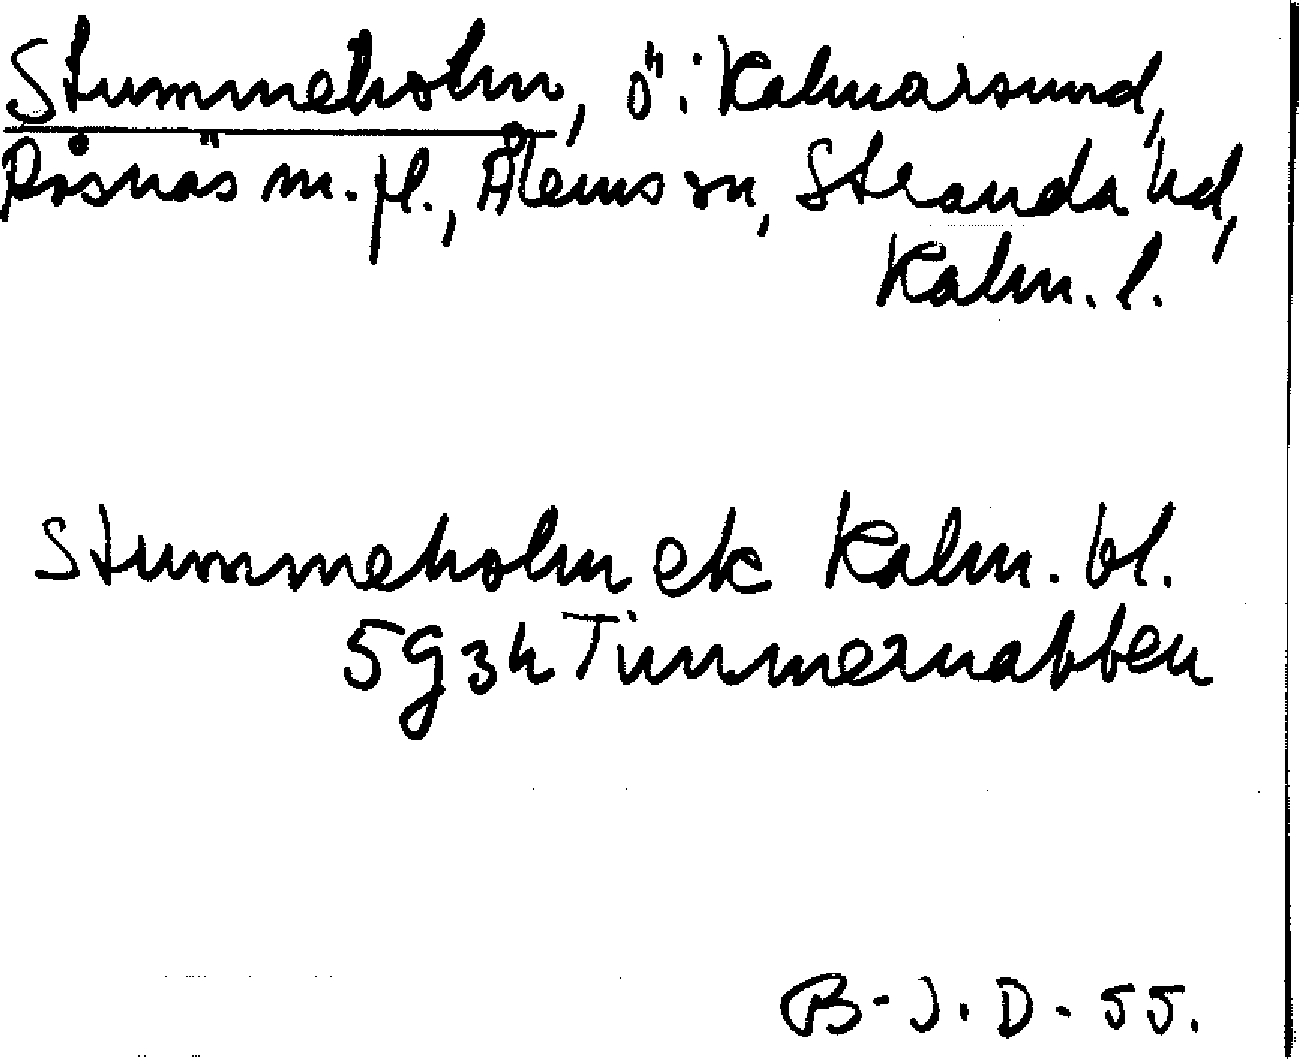 Stummeholm, ö i Kalmarsund,
Påsnäs m. fl., Ålems sn, Stranda hd,
Kalm. l.
Stummeholm ek Kalm. bl.
5g3h Timmernabben
B-J. D - 55.